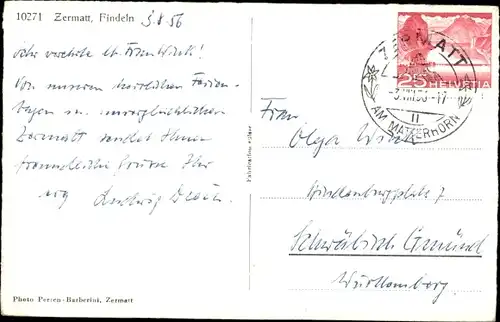 10271 Zermatt, Findeln
3.8.56
sehr verehrte lb. Frau
Von unseren herrlichen Ferien-
tagen im unvergleichlichen
Zermatt sendet Ihnen
freundliche Grüsse Ihr
Ludwig
Photo Perren-Barberini, Zermatt
Fabrikation suisse
ZERMATT
25 HELVETIA
II
AM MATTERHORN
Frau
Olga
7
Schwäbisch Gmünd
Württemberg.